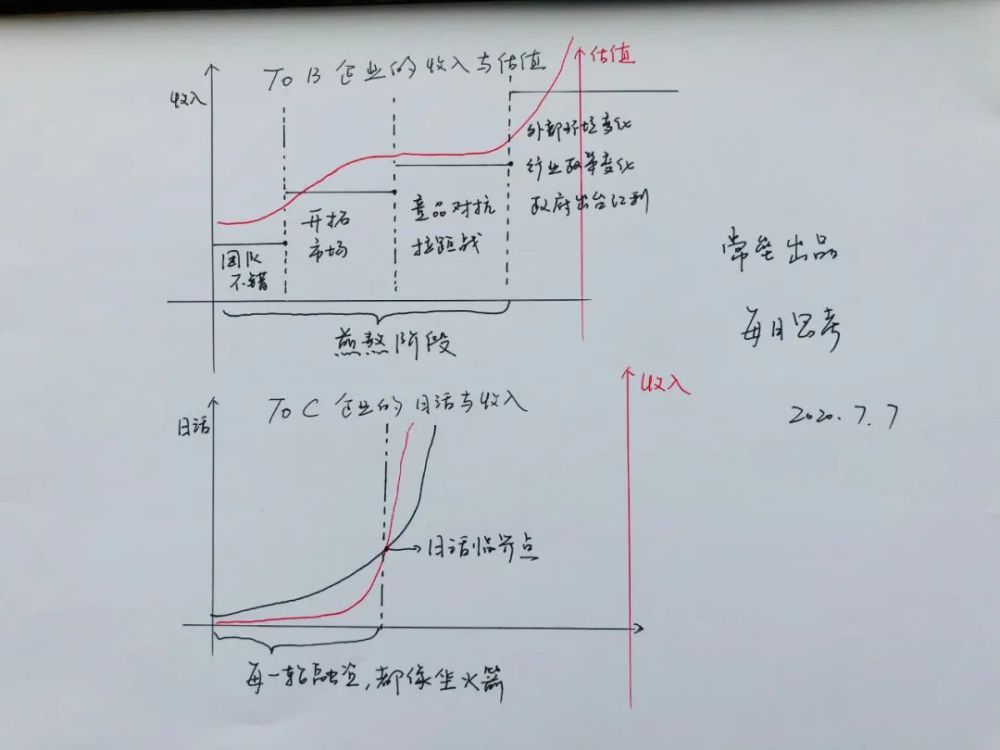 To B 企业的收入与估值
收入
估值
团队
不错
开拓
市场
竞品对抗
拉距战
外部环境变化
行业政策变化
政府出台红利
煎熬阶段
常垒出品
每日思考
2020.7.7
To C 企业的日活与收入
日活
收入
日活临界点
每一轮融资，都像坐火箭